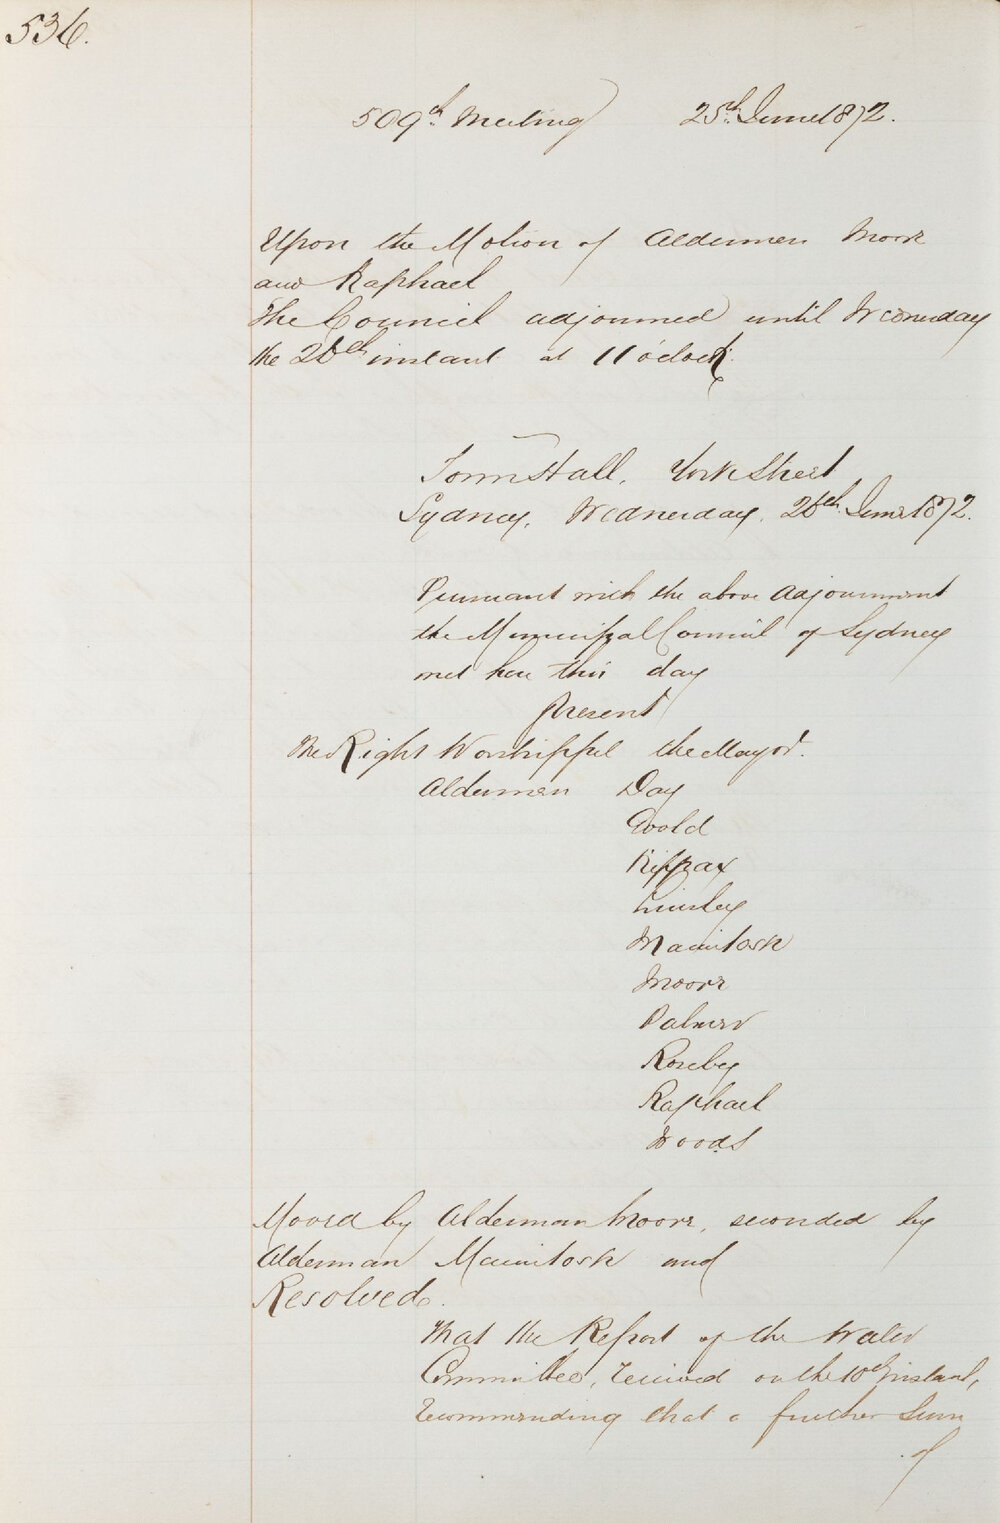 536.
509th Meeting 25th June 1872.
Upon the Motion of Aldermen Moore
and Raphael
The Council adjourned until Wednesday
the 26th instant at 11 o'clock.
Town Hall, York Street
Sydney, Wednesday, 26th June 1872.
Pursuant with the above adjournment
the Municipal Council of Sydney
met here this day
Present
The Right Worshipful the Mayor.
Aldermen Day
Goold
Kippax
Linsley
Macintosh
Moore
Palmer
Roseby
Raphael
Woods
Moved by Alderman Moore, seconded by
Alderman Macintosh and
Resolved.
That the Report of the Water
Committee, received on the 10th instant,
recommending that a further Sum
of